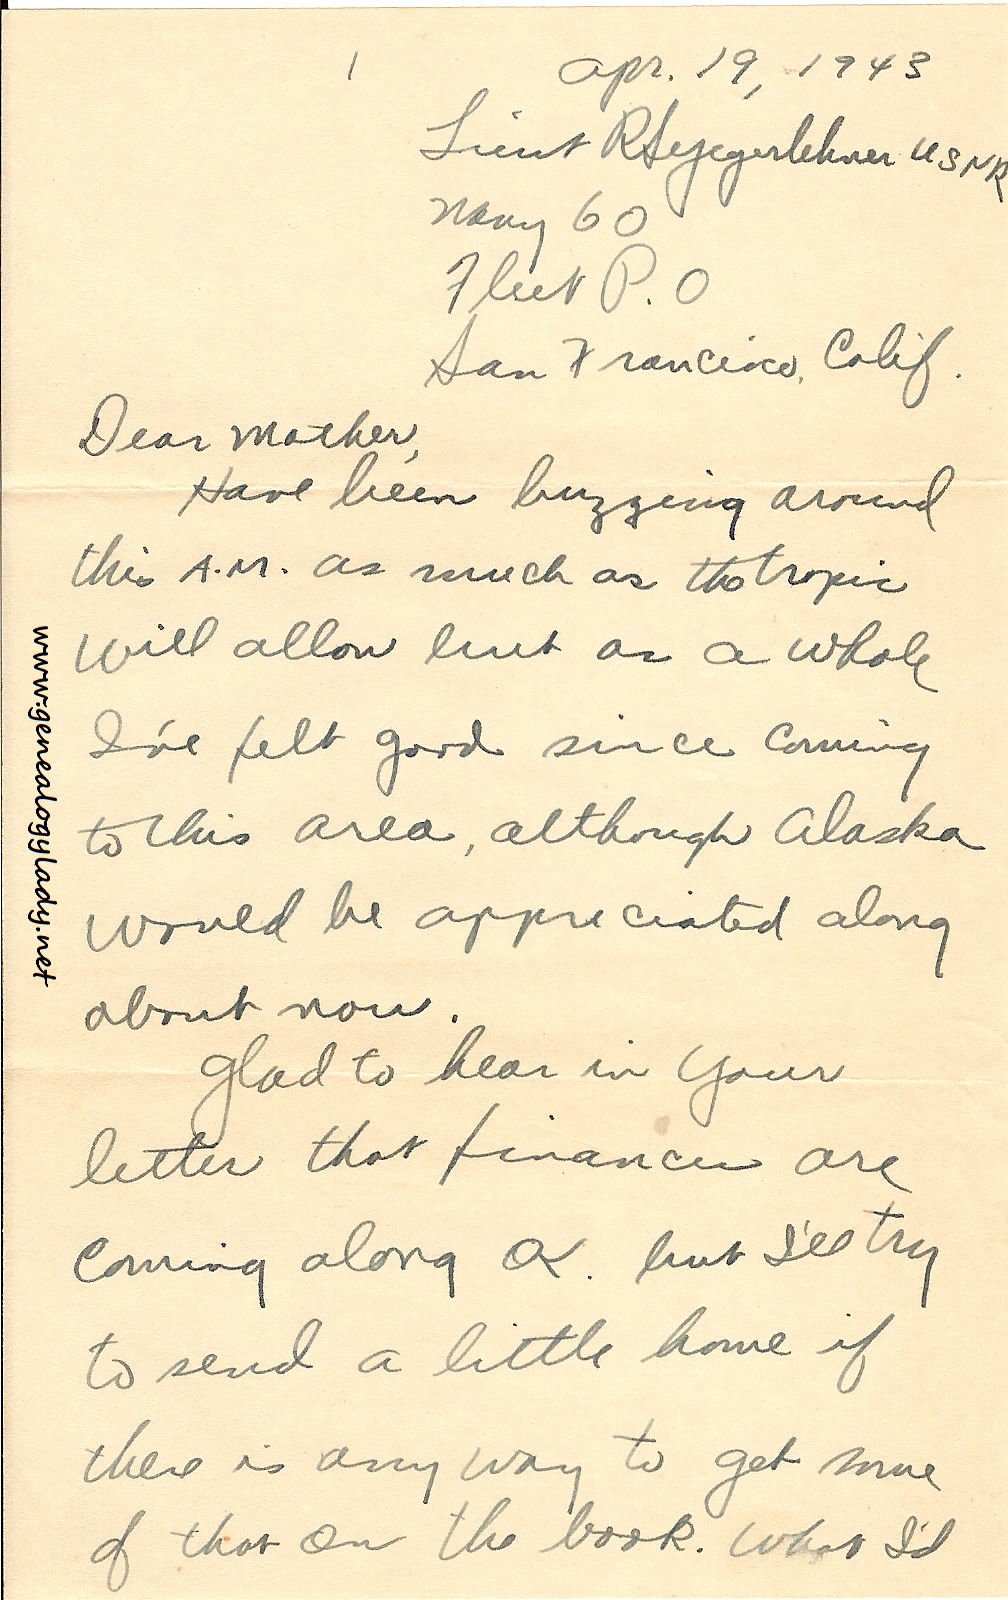 1
Apr. 19, 1943
Lieut R S Yegerlehner USNR
Navy 60
Fleet P. O
San Francisco, Calif.
Dear Mother,
Have been buzzing around
this A.M. as much as the tropic
will allow but as a whole
I've felt good since coming
to this area, although Alaska
would be appreciated along
about now.
Glad to hear in your
letter that finances are
coming along OK. but I'll try
to send a little home if
there is any way to get some
of that on the book. What I'd
www.genealogylady.net